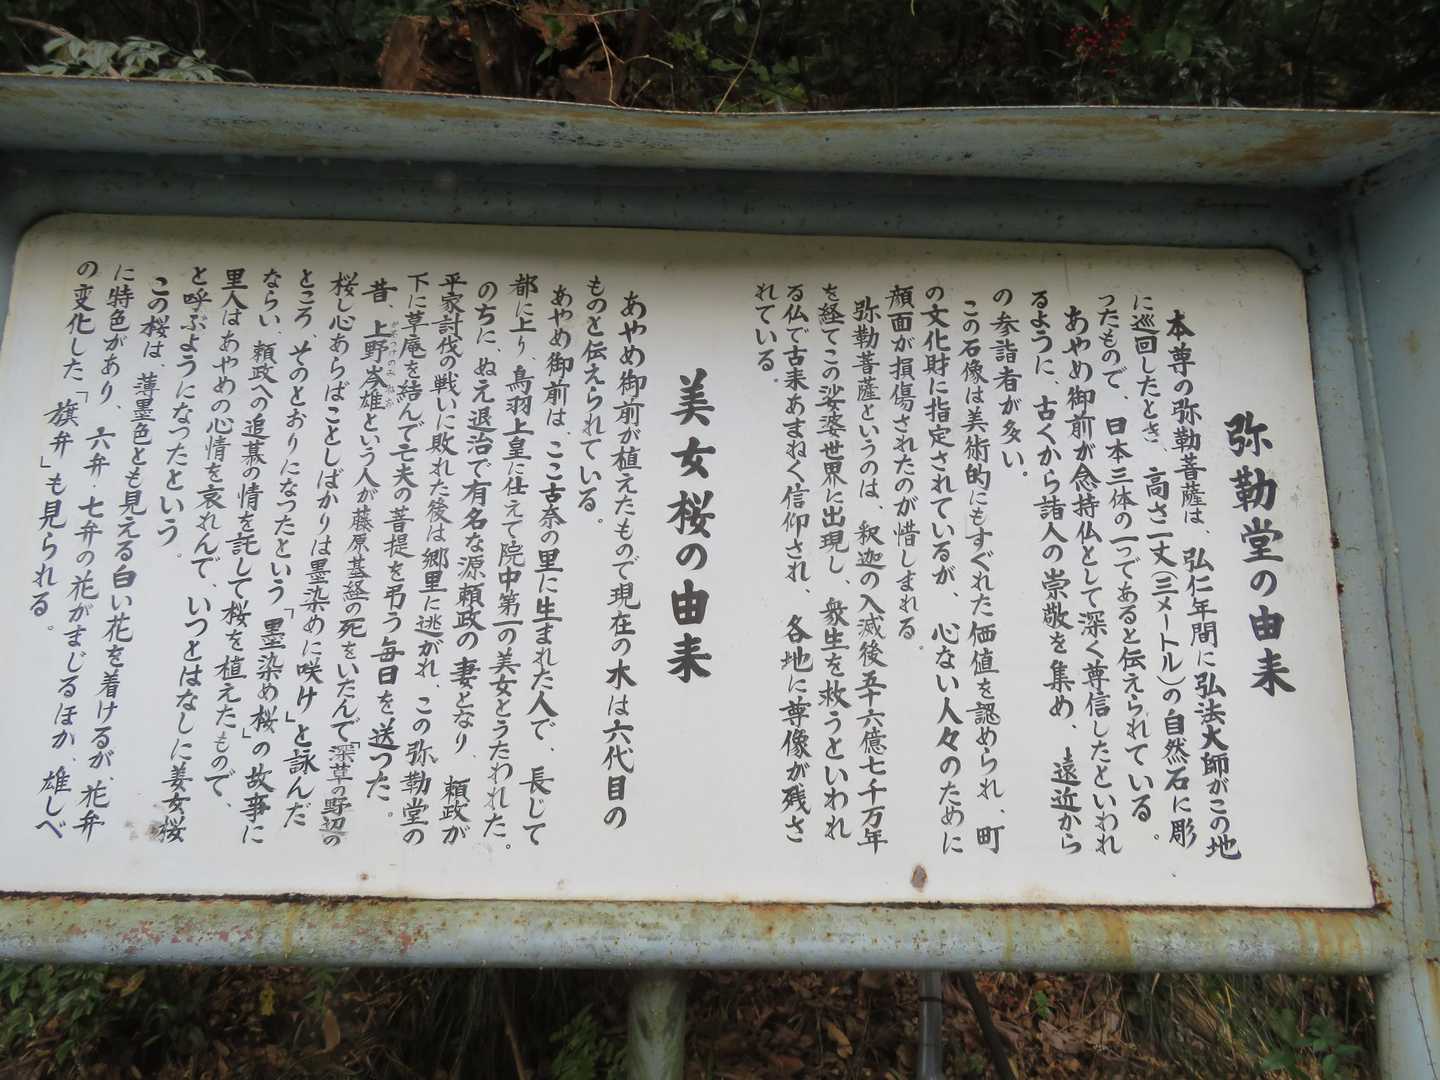 弥勒堂の由来
本尊の弥勒菩薩は、弘仁年間に弘法大師がこの地
に巡回したとき、高さ一丈(三メートル)の自然石に彫
つたもので、日本三体の一つであると伝えられている。
あやめ御前が念持仏として深く尊信したといわれ
るように、古くから諸人の崇敬を集め、遠近から
の参詣者が多い。
この石像は美術的にもすぐれた価値を認められ、町
の文化財に指定されているが、心ない人々のために
顔面が損傷されたのが惜しまれる。
弥勒菩薩というのは、釈迦の入滅後五十六億七千万年
を経てこの娑婆世界に出現し、衆生を救うといわれ
る仏で古来あまねく信仰され、各地に尊像が残さ
れている。
美女桜の由来
あやめ御前が植えたもので現在の木は六代目の
ものと伝えられている。
あやめ御前は、ここ古奈の里に生まれた人で、長じて
都に上り、鳥羽上皇に仕えて院中第一の美女とうたわれた。
のちに、ぬえ退治で有名な源頼政の妻となり、頼政が
平家討伐の戦いに敗れた後は郷里に逃がれ、この弥勒堂の
下に草庵を結んで亡夫の菩提を弔う毎日を送つた。
昔、上野岑雄という人が藤原基経の死をいたんで「深草の野辺の
桜し心あらばことしばかりは墨染めに咲け」と詠んだ
ところ、そのとおりになつたという「墨染め桜」の故事に
ならい、頼政への追慕の情を託して桜を植えたもので、
里人はあやめの心情を哀れんで、いつとはなしに美女桜
と呼ぶようになつたという。
この桜は、薄墨色とも見える白い花を着けるが、花弁
に特色があり、六弁、七弁の花がまじるほか、雄しべ
の変化した「旗弁」も見られる。